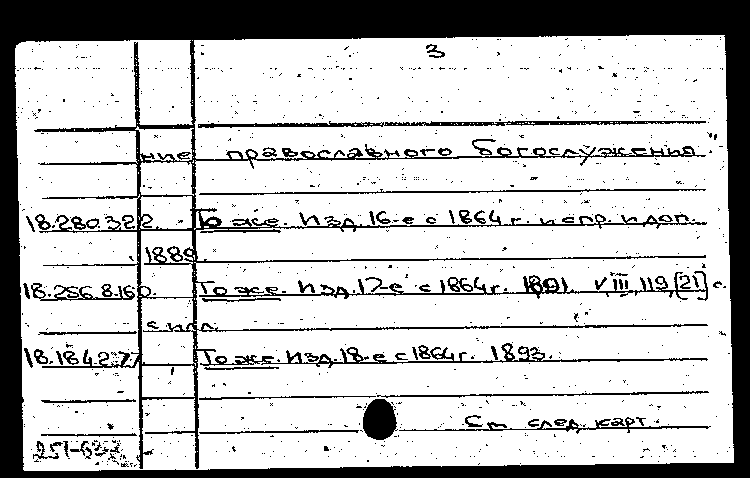 3
ние православного богослужения"
18.280.322. То же. Изд. 16-е с 1864 г. испр. и доп.
1889
18.256.8.160. То же. Изд. 17-е с 1864 г. 1891. VIII, 119, [21] с.
с илл.
18.184.2.77. То же. Изд. 18-е с 1864 г. 1893.
См след. карт.
251-63-2